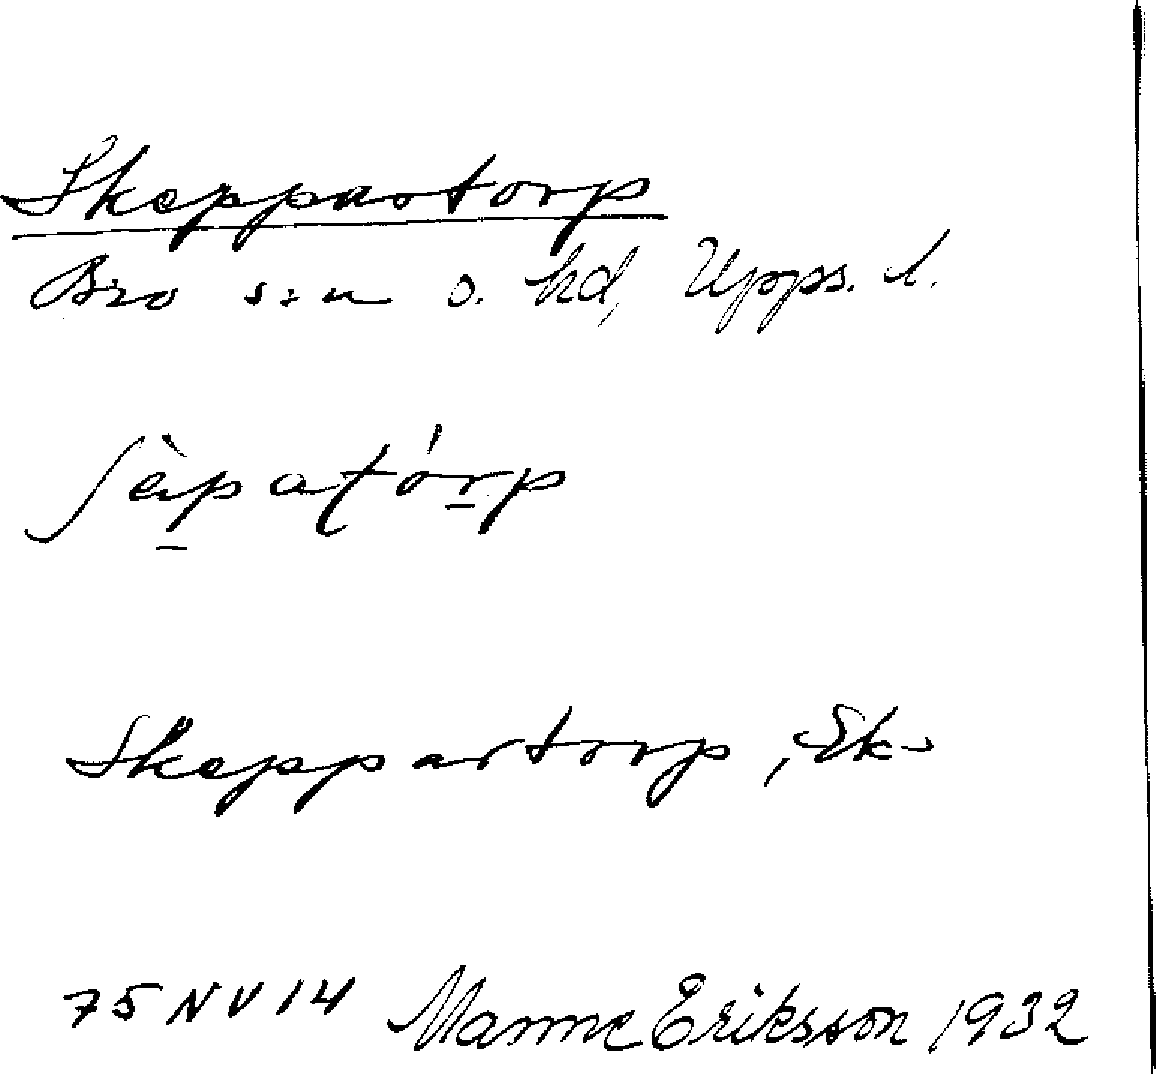 Skeppartorp
Bro s:n o. hd, Upps. l.
ʃèpaţórp
Skeppartorp, Ek.
75 NV 14 Manne Eriksson 1932